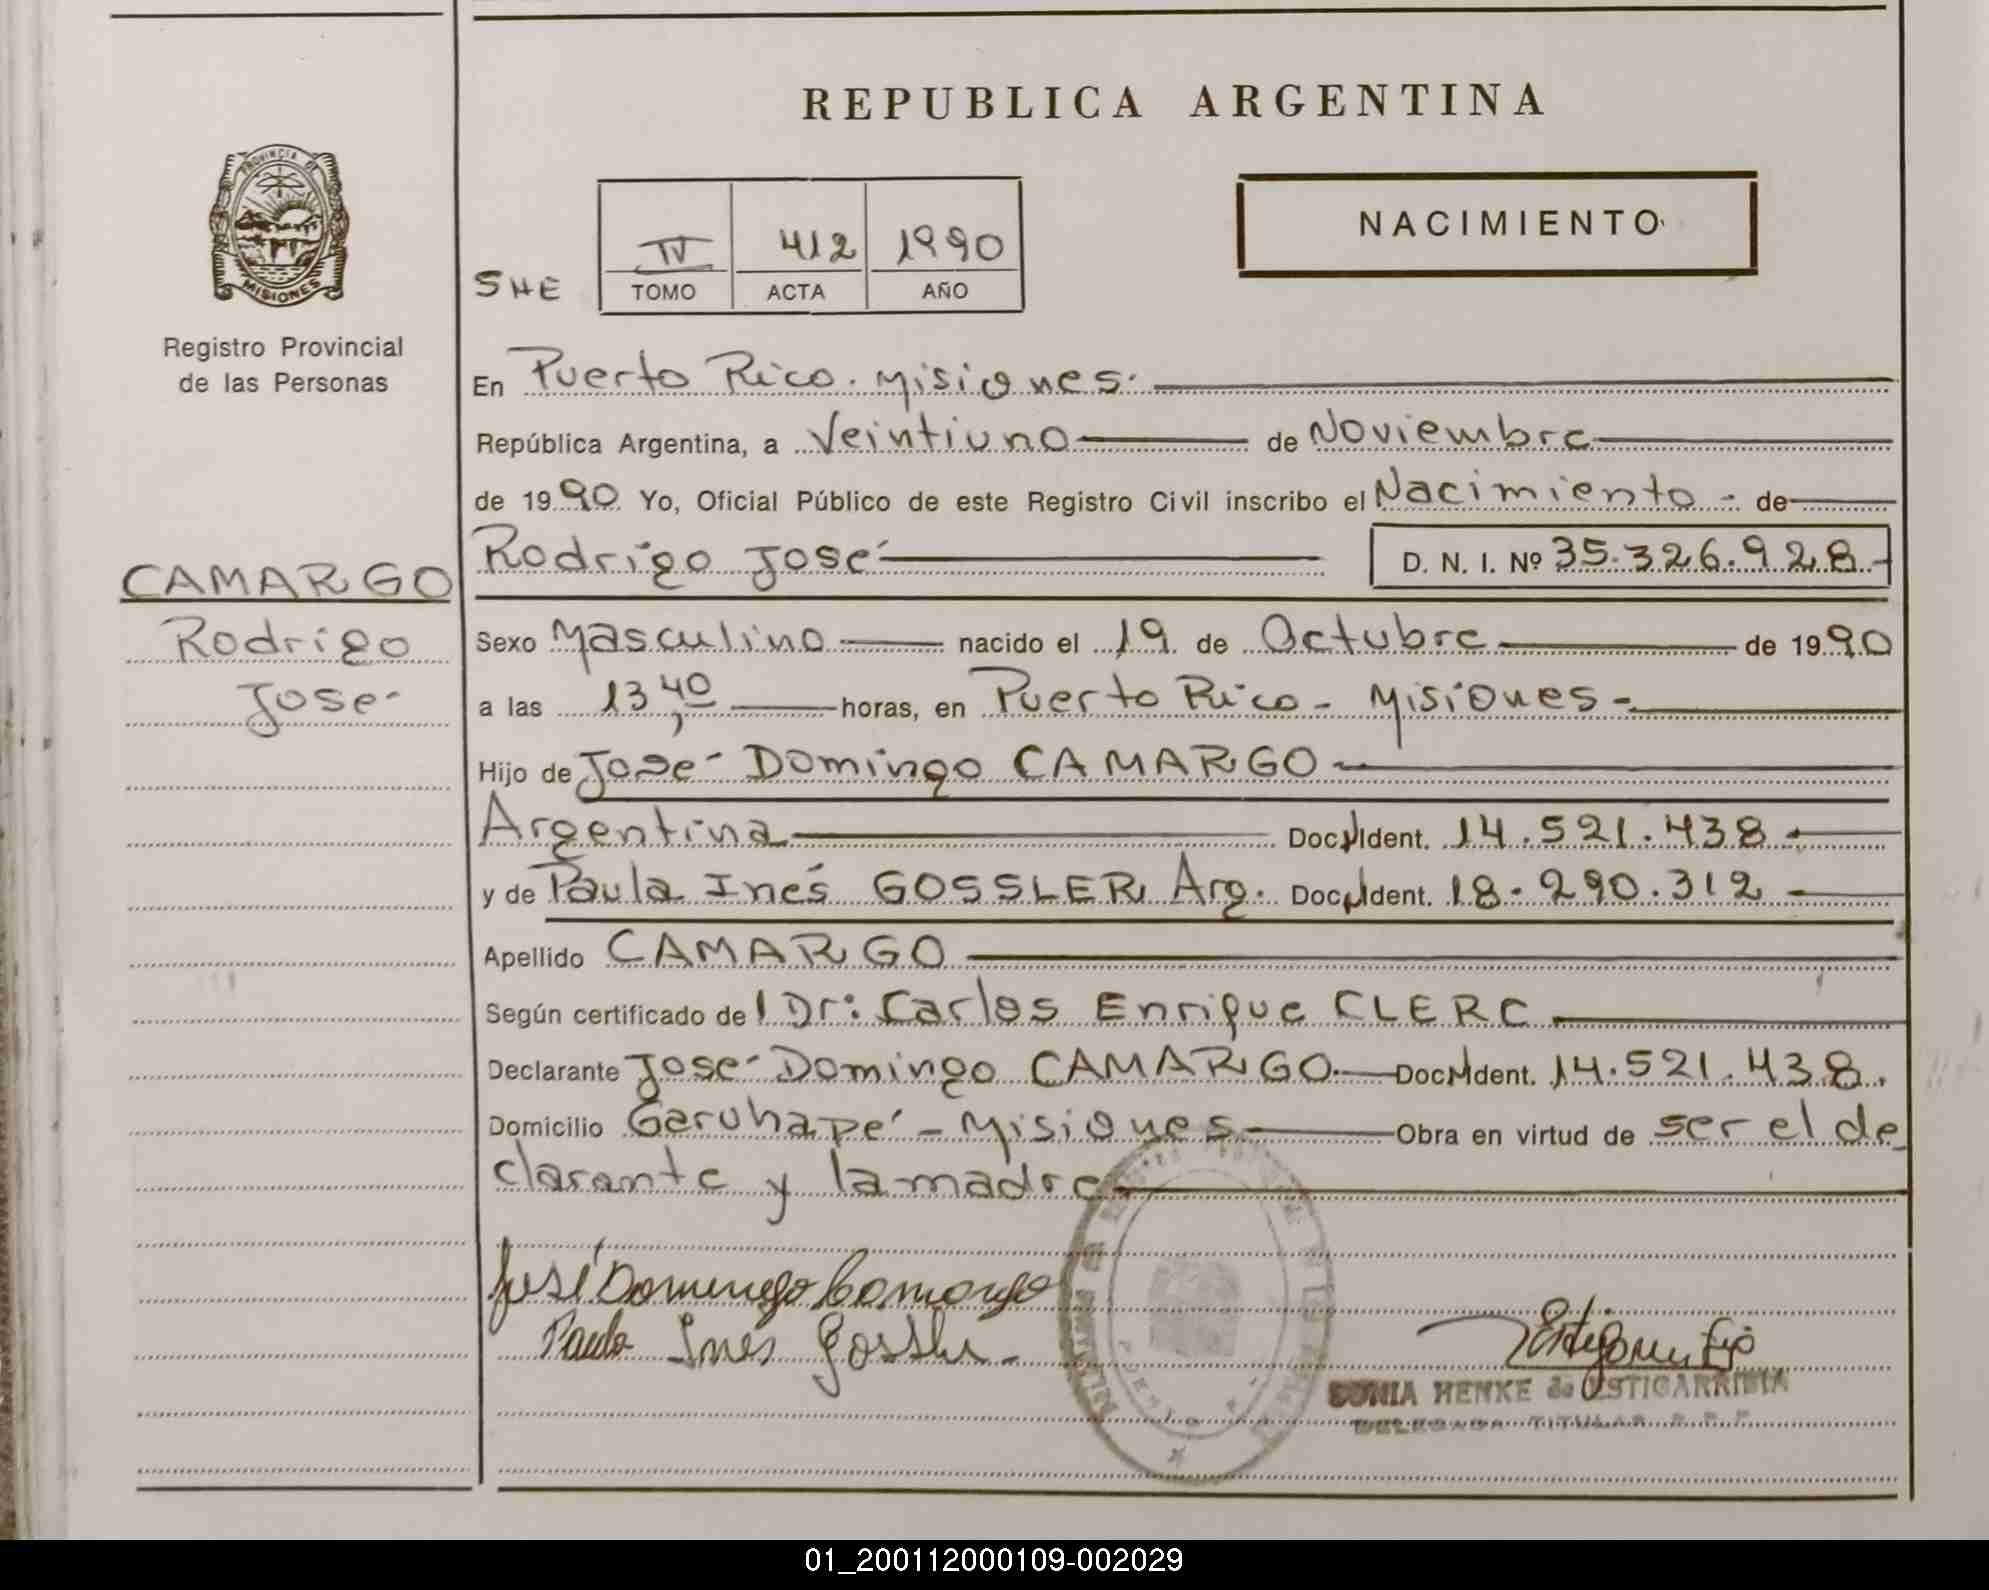 REPUBLICA ARGENTINA
PROVINCIA DE
MISIONES
Registro Provincial
de las Personas
SHE
IV 412 1990
TOMO ACTA AÑO
NACIMIENTO
En Puerto Rico. Misiones.
República Argentina, a Veintiuno de Noviembre
de 1990 Yo, Oficial Público de este Registro Civil inscribo el Nacimiento - de
Rodrigo José D. N. I. Nº 35.326.928.-
CAMARGO
Rodrigo
José
Sexo Masculino nacido el 19 de Octubre de 1990
a las 13,40 horas, en Puerto Rico - Misiones -
Hijo de José Domingo CAMARGO
Argentina Doc. Ident. 14.521.438
y de Paula Inés GOSSLER Arg. Doc. Ident. 18.290.312
Apellido CAMARGO
Según certificado de l Dr: Carlos Enrique CLERC
Declarante José Domingo CAMARGO. Doc. Ident. 14.521.438.
Domicilio Garuhapé - Misiones Obra en virtud de ser el de
clarante y la madre
José Domingo Camargo
Paula Inés Gossler -
SONIA HENKE de ESTIGARRIBIA
DELEGADA TITULAR R.P.P.
01_200112000109-002029